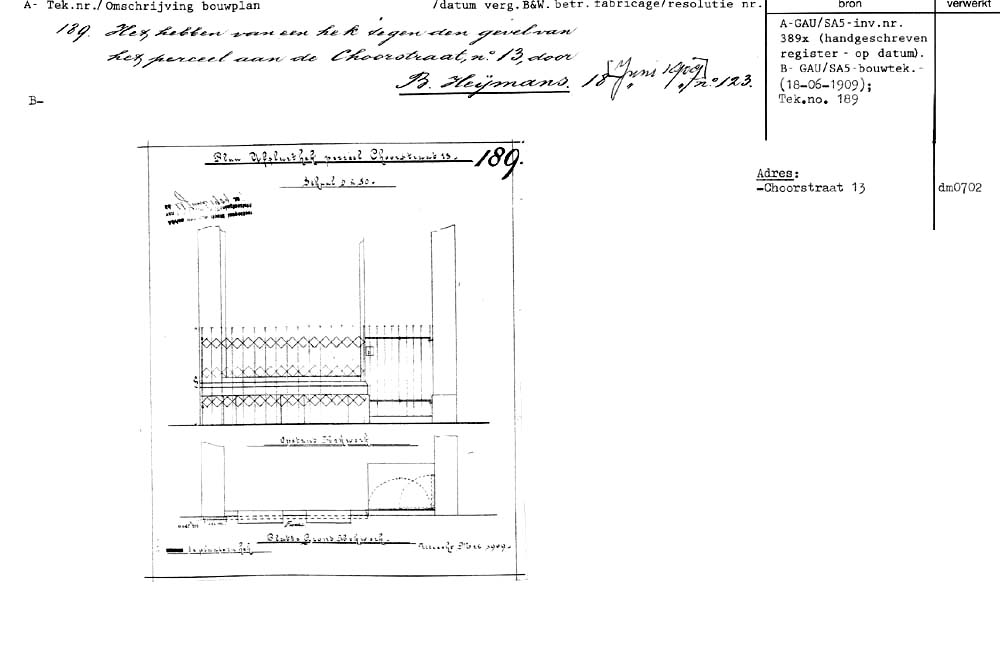 A- Tek.nr./Omschrijving bouwplan /datum verg.B&W. betr. fabricage/resolutie nr. bron verwerkt
189. Het hebben van een hek tegen den gevel van
het perceel aan de Choorstraat, no. 13, door
B. Heijmans. 18 [Juni 1909] no. 123.
B-
A-GAU/SA5-inv.nr.
389x (handgeschreven
register - op datum).
B- GAU/SA5-bouwtek.-
(18-06-1909);
Tek.no. 189
Adres:
-Choorstraat 13 dm0702
Plan Afsluithek perceel Choorstraat 13. 189.
Schaal 1 à 50.
Opstand Hekwerk
Platte Grond Hekwerk.
Utrecht Mei 1909.